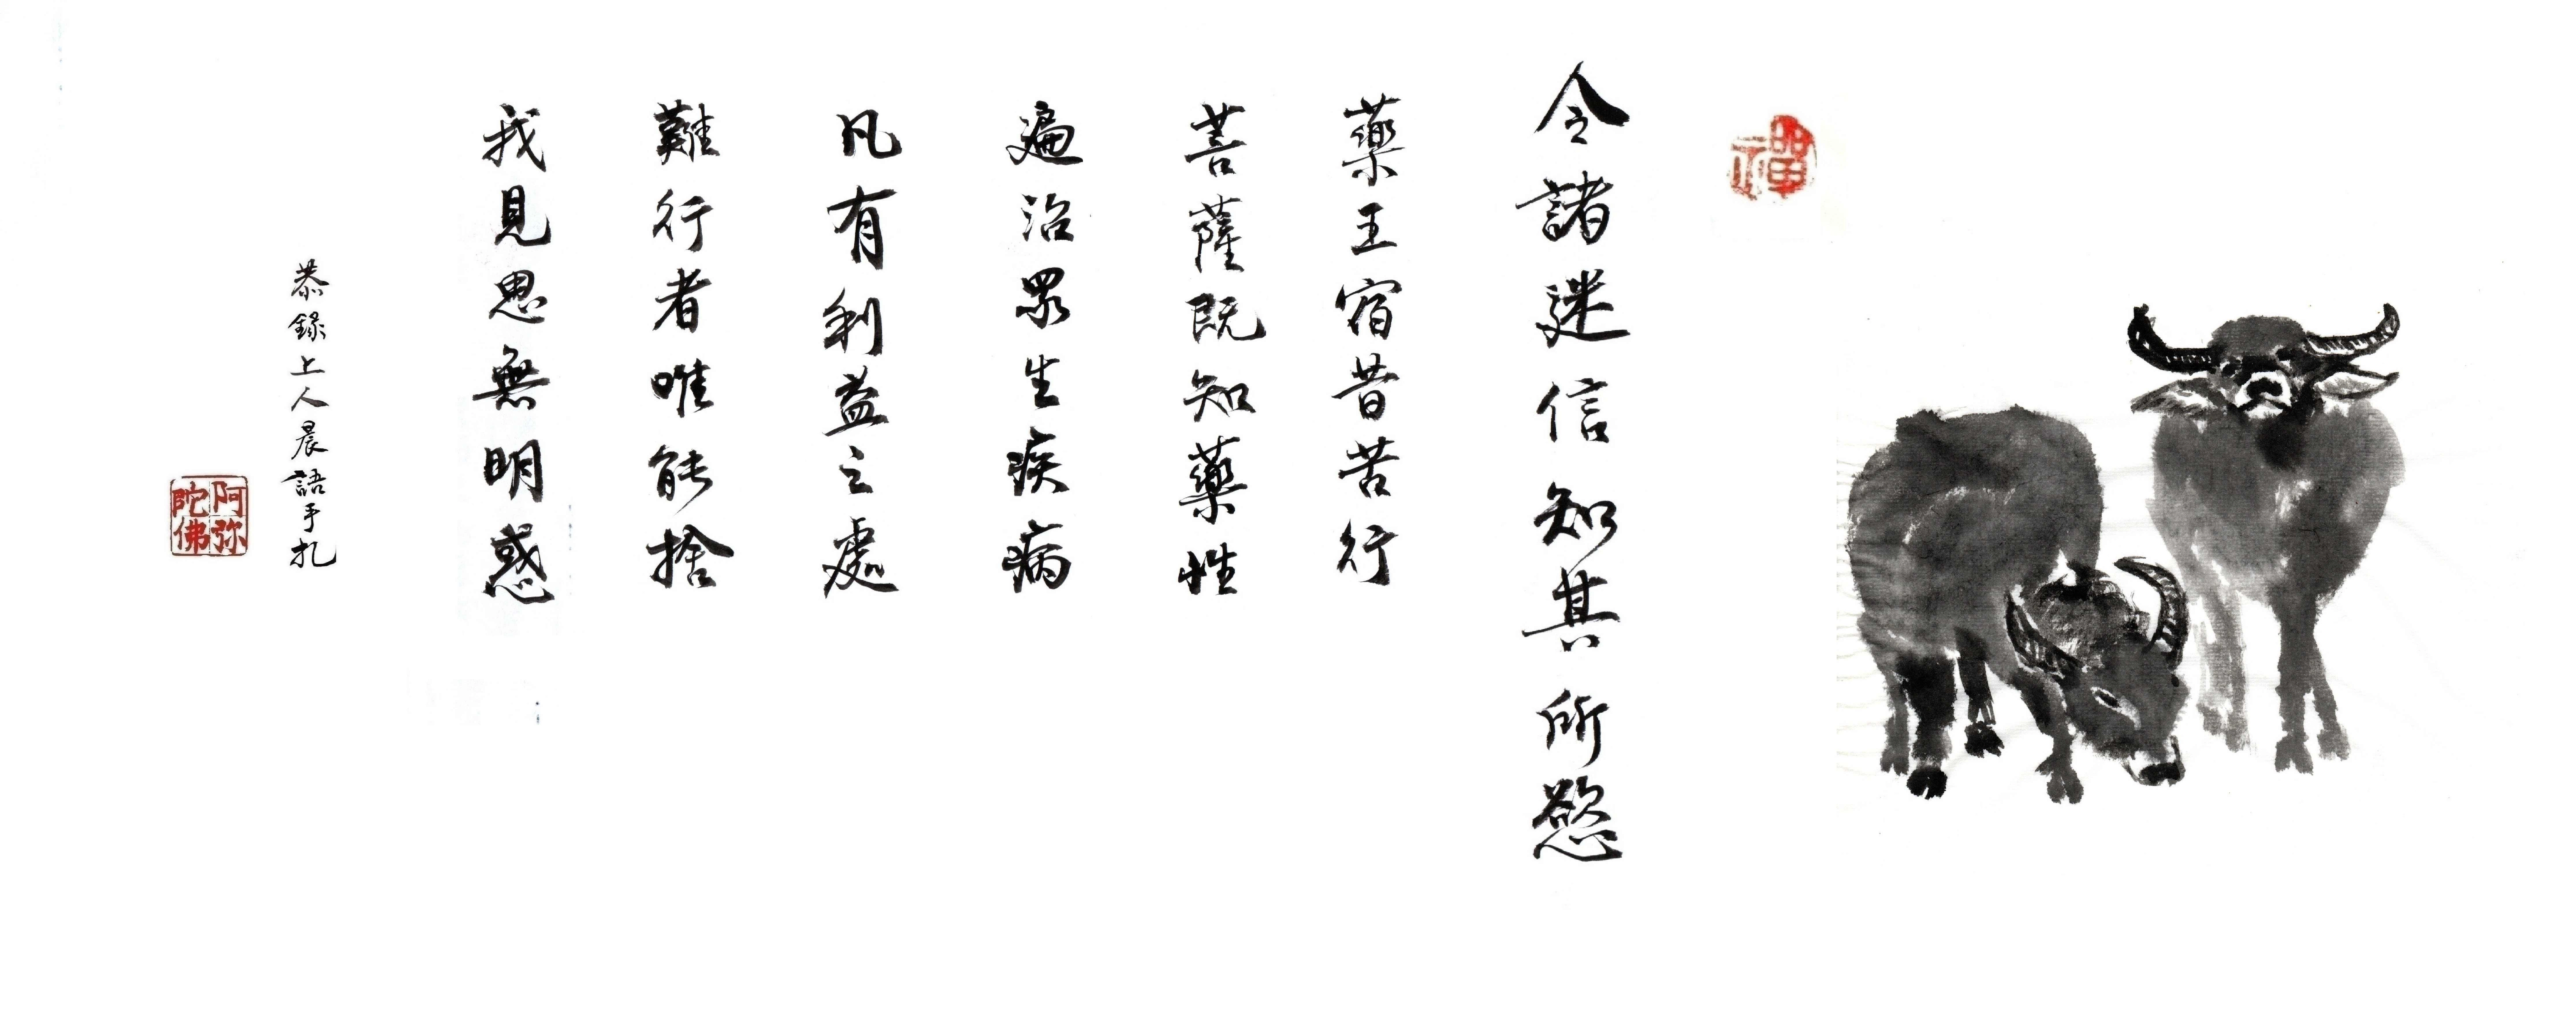 禪
令諸迷信知其所慾
藥王宿昔苦行
菩薩既知藥性
遍治眾生疾病
凡有利益之處
難行者唯能捨
我見思無明惑
恭錄上人晨語手札
阿弥
陀佛